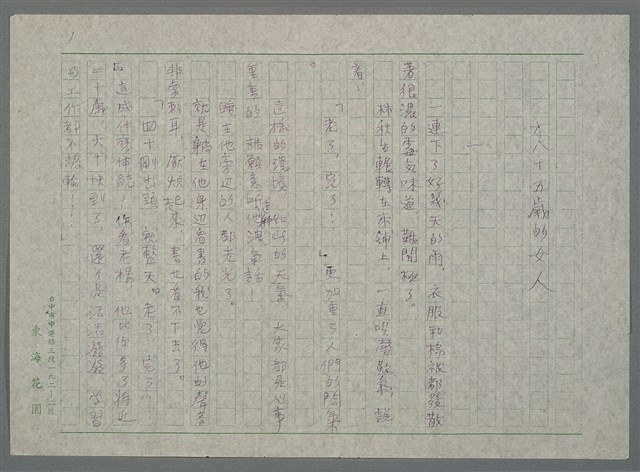 1
才八十五歲的女人
一
一連下了好幾天的雨，衣服和棉被都發散
著很濃的霉氣味道，難聞極了。
林秋生輾轉在床鋪上，一直唉聲歎氣，說
著：
「老了，完了！」更加重了人們的悶氣
。
這樣的環境，如此的天氣，大家都是心事
重重的，誰願意聽他洩氣話！
睡在他旁邊的人都走光了。
就是躺在他身边看書的我也覺得他的聲音
非常刺耳，厭煩起來，書也看不下去了。
「四十剛出頭，完整天。老了，完了！
造成什麼体統！你看老楊，他比你多了將近
二十歲，六十快到了，還不是活活潑潑，学習
工作都不認輸！」
台中市中港路三段
東海花園